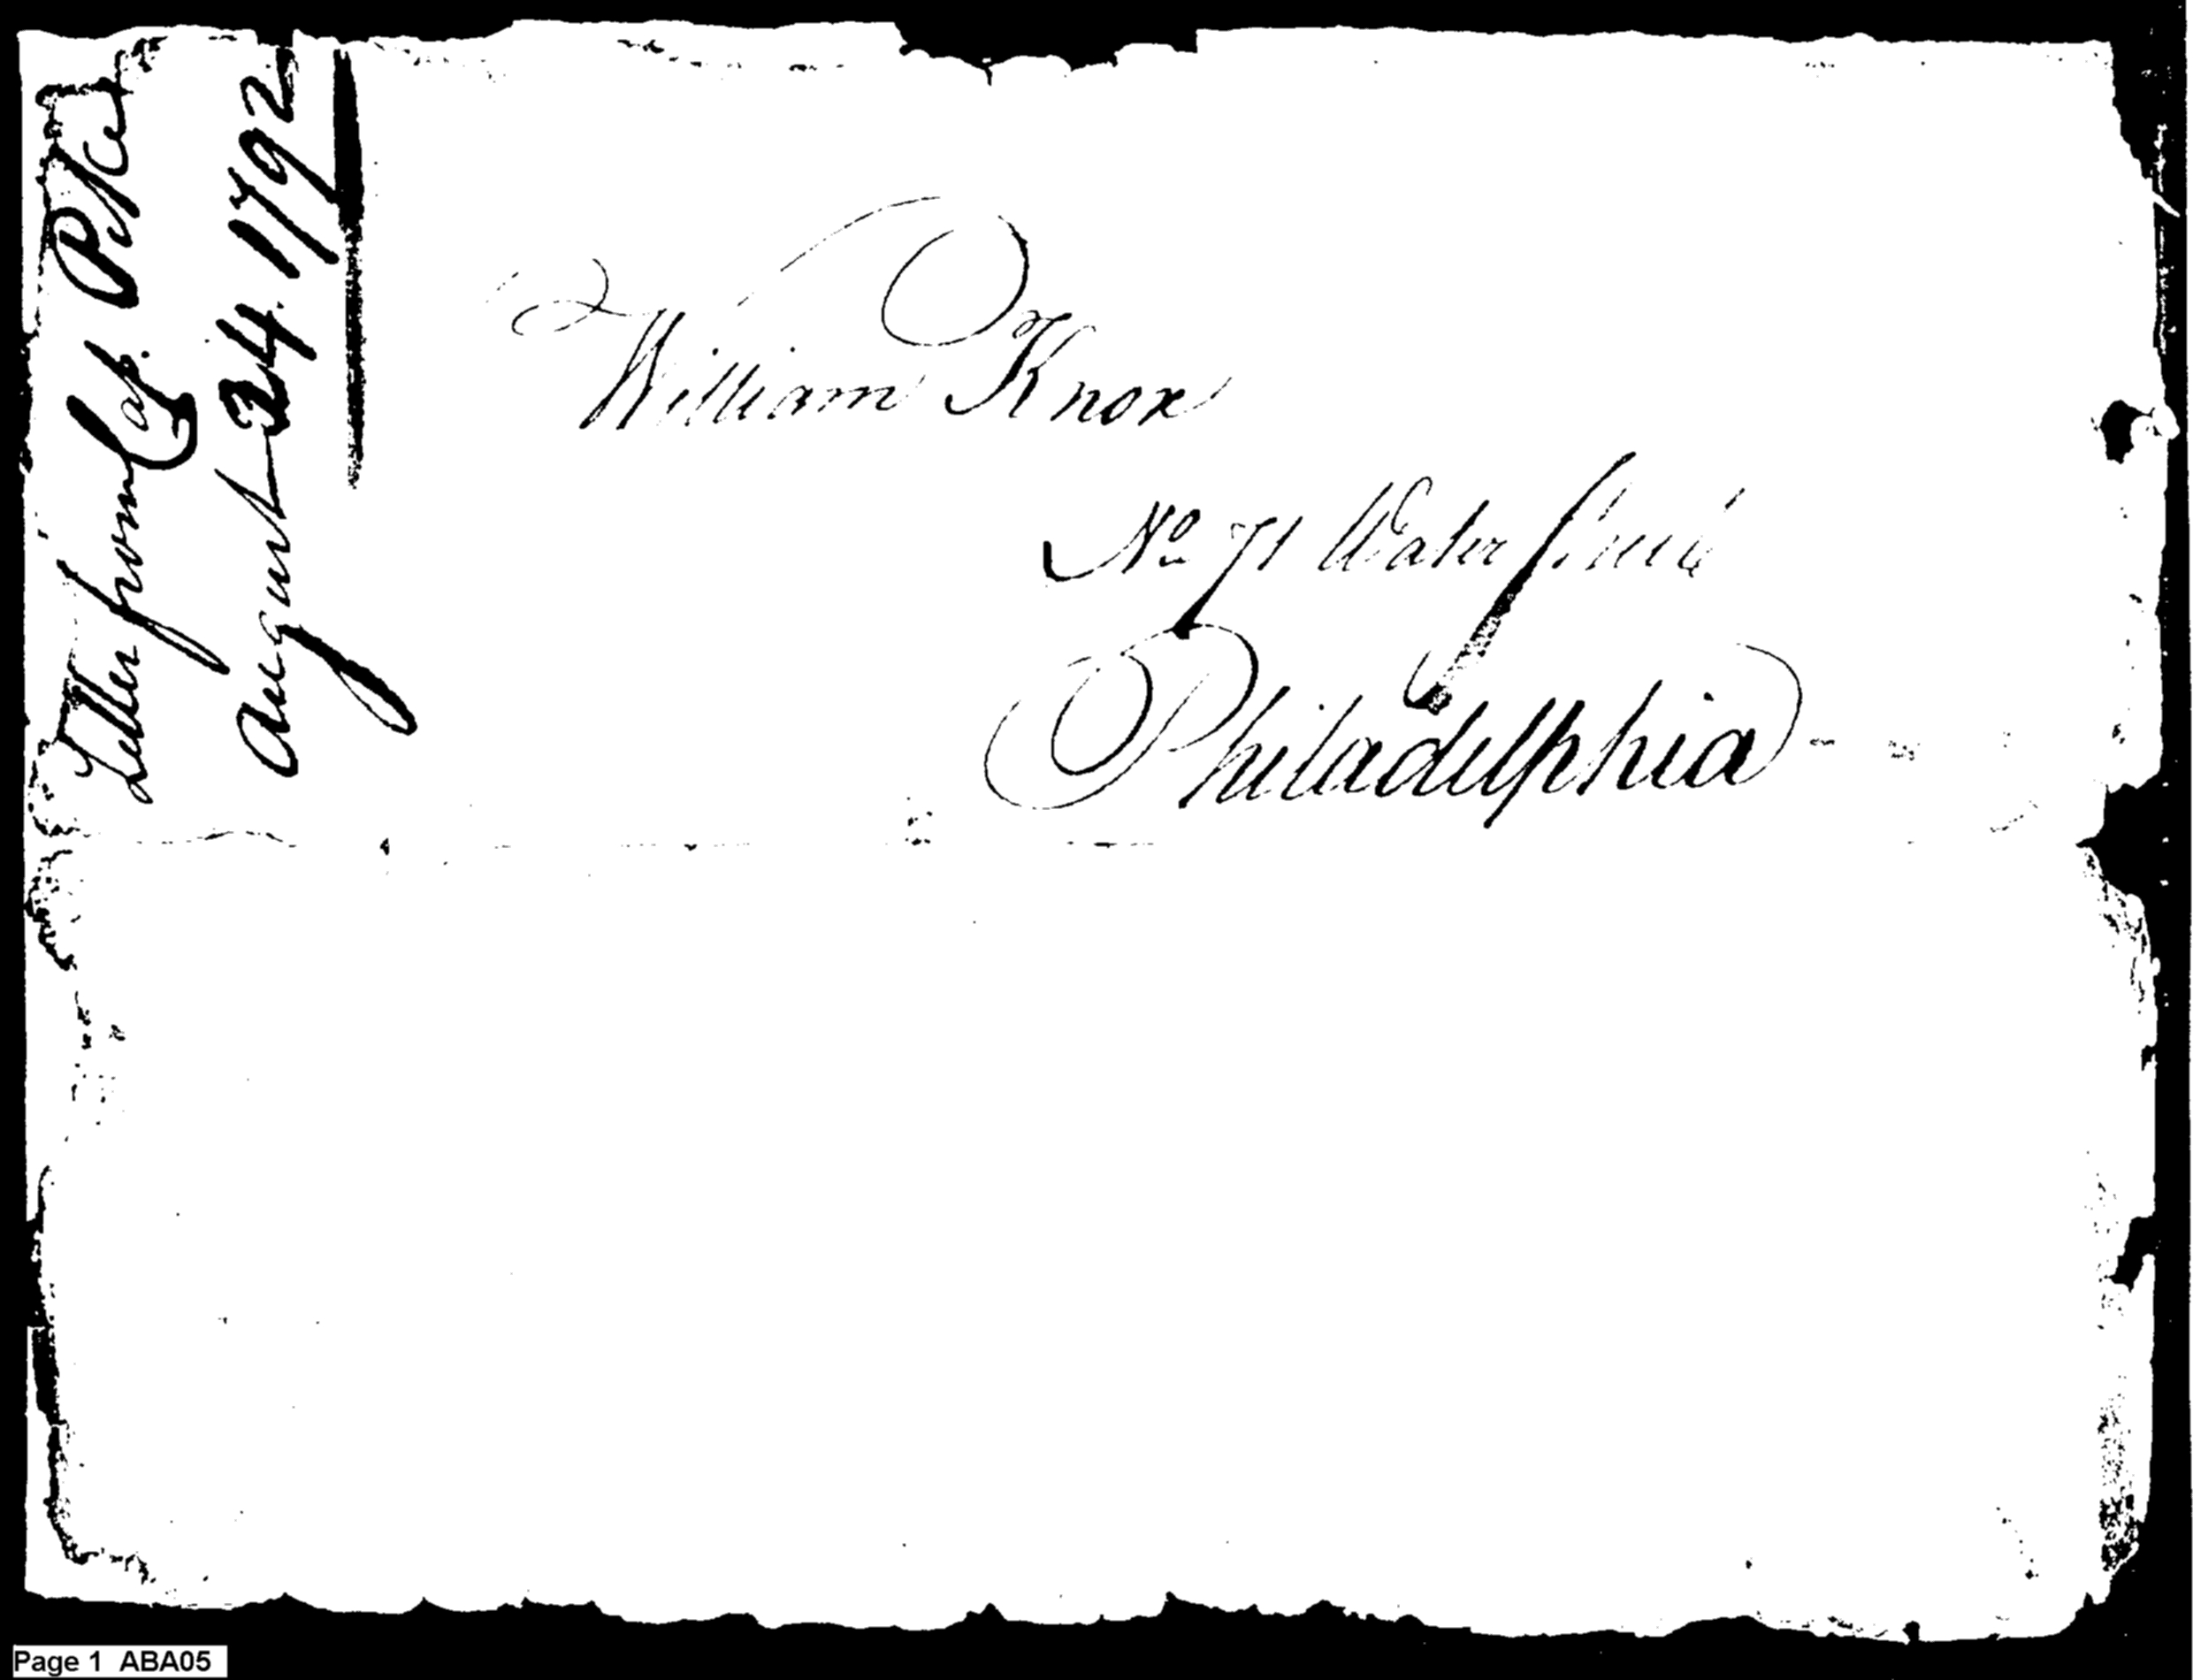 Letter from
August 24 1792
William Knox
No 71 Water Street
Philadelphia
Page 1 ABA05